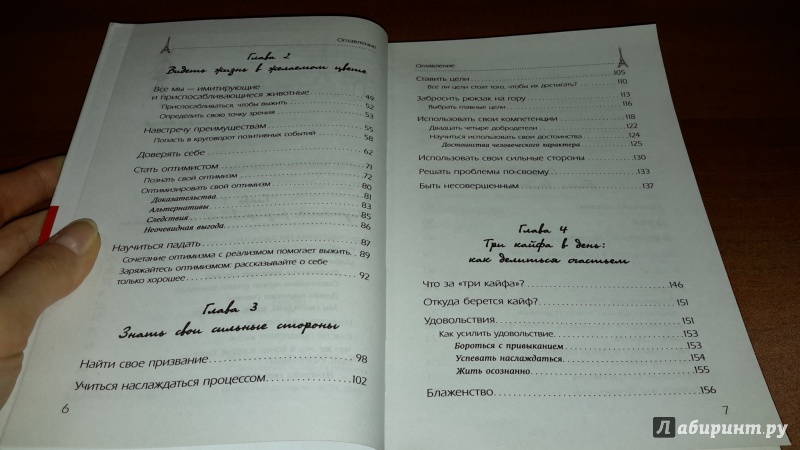 Оглавление
Глава 2
Видеть жизнь в желаемом цвете
Все мы — имитирующие
и приспосабливающиеся животные 49
Приспосабливаться, чтобы выжить 52
Определить свою точку зрения 53
Навстречу преимуществам 55
Попасть в круговорот позитивных событий 58
Доверять себе 62
Стать оптимистом 71
Познать свой оптимизм 72
Оптимизировать свой оптимизм 80
Доказательства 81
Альтернативы 83
Следствия 85
Неочевидная выгода 86
Научиться падать 87
Сочетание оптимизма с реализмом помогает выжить 89
Заряжайтесь оптимизмом: рассказывайте о себе
только хорошее 92
Глава 3
Знать свои сильные стороны
Найти свое призвание 98
Учиться наслаждаться процессом 102
6
Оглавление
Ставить цели 105
Все ли цели стоят того, чтобы их достигать? 110
Забросить рюкзак на гору 113
Выбрать главные цели 116
Использовать свои компетенции 118
Двадцать четыре добродетели 122
Научиться использовать свои достоинства 124
Достоинства человеческого характера 125
Использовать свои сильные стороны 130
Решать проблемы по-своему 133
Быть несовершенным 137
Глава 4
Три кайфа в день:
как делиться счастьем
Что за «три кайфа»? 146
Откуда берется кайф? 151
Удовольствия 151
Как усилить удовольствие 153
Бороться с привыканием 153
Успевать наслаждаться 154
Жить осознанно 155
Блаженство 156
7
Лабиринт.ру